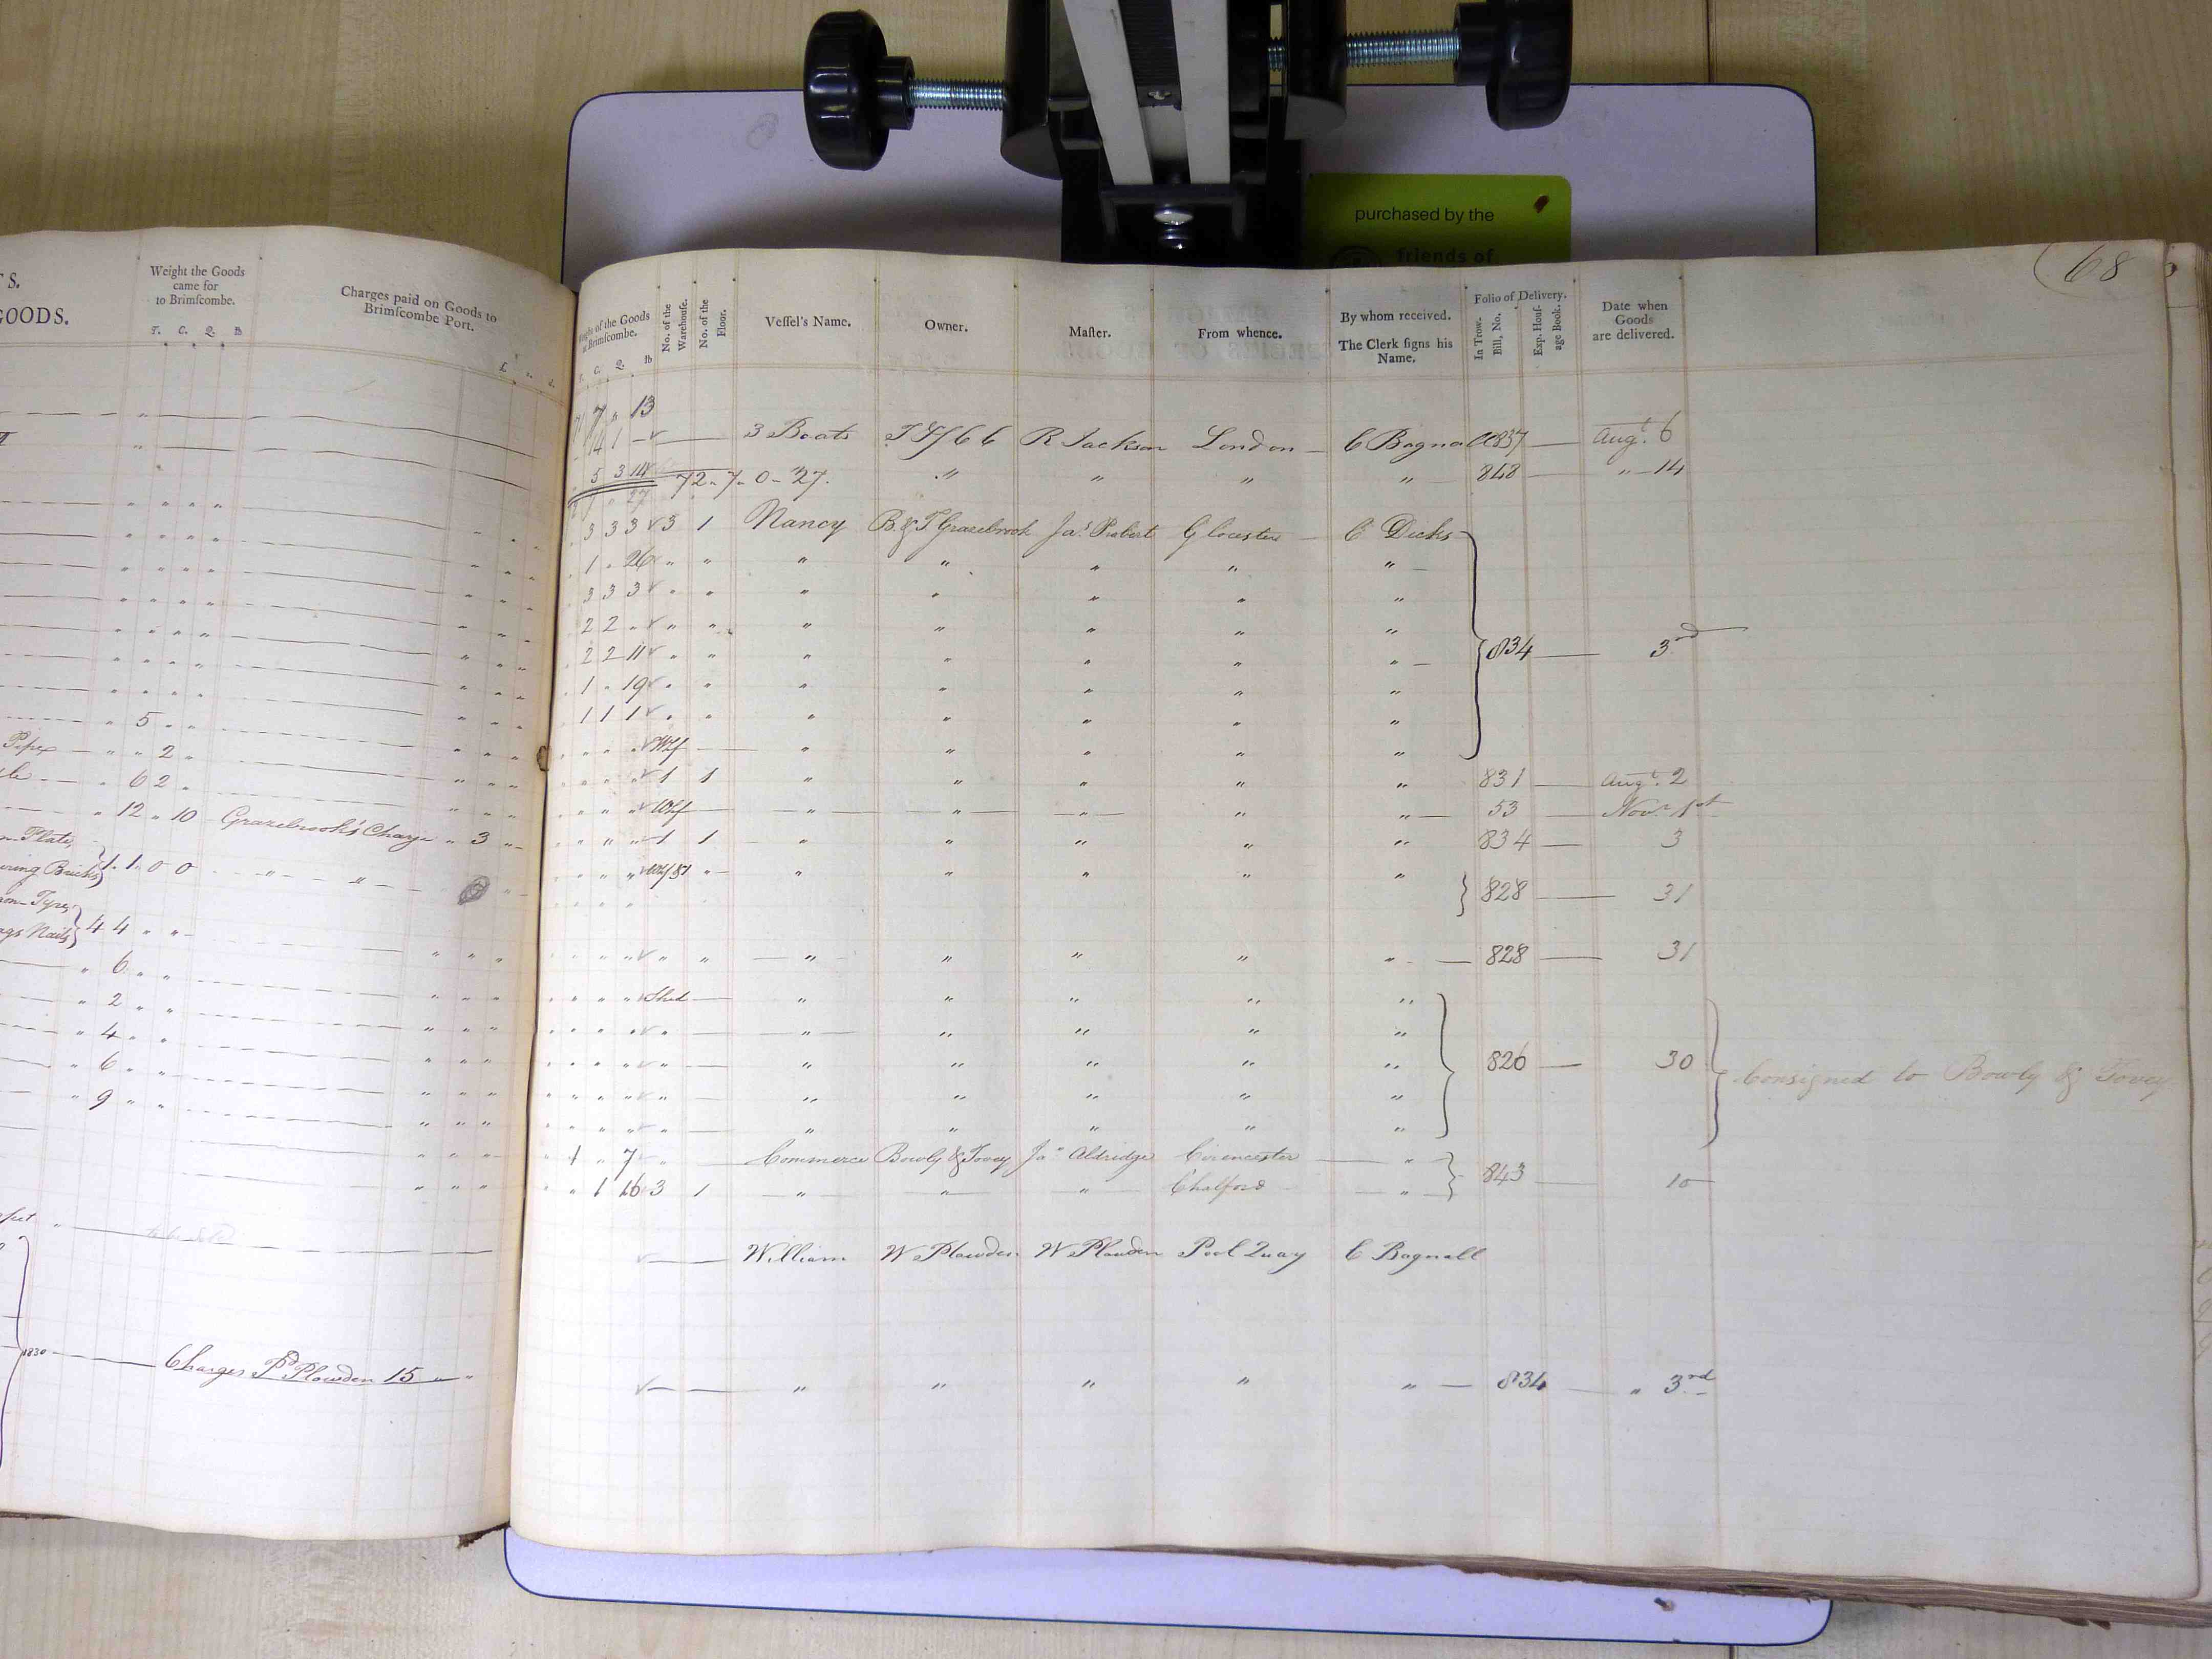 purchased by the
friends of
68
S.
GOODS.
Weight the Goods
came for
to Brimſcombe.
T. C. Q. lb
Charges paid on Goods to
Brimſcombe Port.
£ s. d.
" 5 " "
Pipes " " 2 "
" 6 2 "
" 12 " 10 Grazebrook's Charge " 3 "
Plate
Bricks } 1. 1. 0 0 " "
Tyres
Nails } 4 4 " "
" 6 " "
" 2 " "
" 4 " "
" 6 " "
" 9 " "
to be sold
1830 Charges Pd Plowden 15 " "
of the Goods
at Brimſcombe.
C. Q. lb
No. of the
Warehouſe.
No. of the
Floor.
Veſſel's Name.
Owner.
Maſter.
From whence.
By whom received.
The Clerk ſigns his
Name.
Folio of Delivery.
In Trow-
Bill, No.
Exp. Houſ-
age Book.
Date when
Goods
are delivered.
7 " 13
14 1 - 3 Boats R Jackson London C Bagnall 837 Augt. 6
5 3 14 72 - 7 - 0 - 27. " " " " 848 " 14
3 3 3 3 1 Nancy B & T Grazebrook Jas Probert Glocester C Dicks
1 " 26 " " " " " " "
3 3 3 " " " " " " "
2 2 " " " " " " " "
2 2 11 " " " " " " " 834 3rd
1 " 19 " " " " " " "
1 1 1 " " " " " " "
" " " " Whf " " " " "
" " " " 1 1 " " " " " 831 Augt. 2
" " " " Whf " " " " " 53 Novr. 1st
" " " " 1 1 " " " " " 834 3
" " " " " " " " " " 828 31
" " " " " " " " " " " 828 31
" " " " Shed " " " " "
" " " " " " " " " "
" " " " " " " " " " 826 30 Consigned to Bowly & Tovey
" " " " " " " " " "
" " " " " " " " " "
" 1 " 7 Commerce Bowly & Tovey Jas Aldridge Cirencester "
" " 1 16 3 1 " " " Chalford " 843 10
William W Plowden W Plowden Pool Quay C Bagnall
" " " " " 834 " 3rd